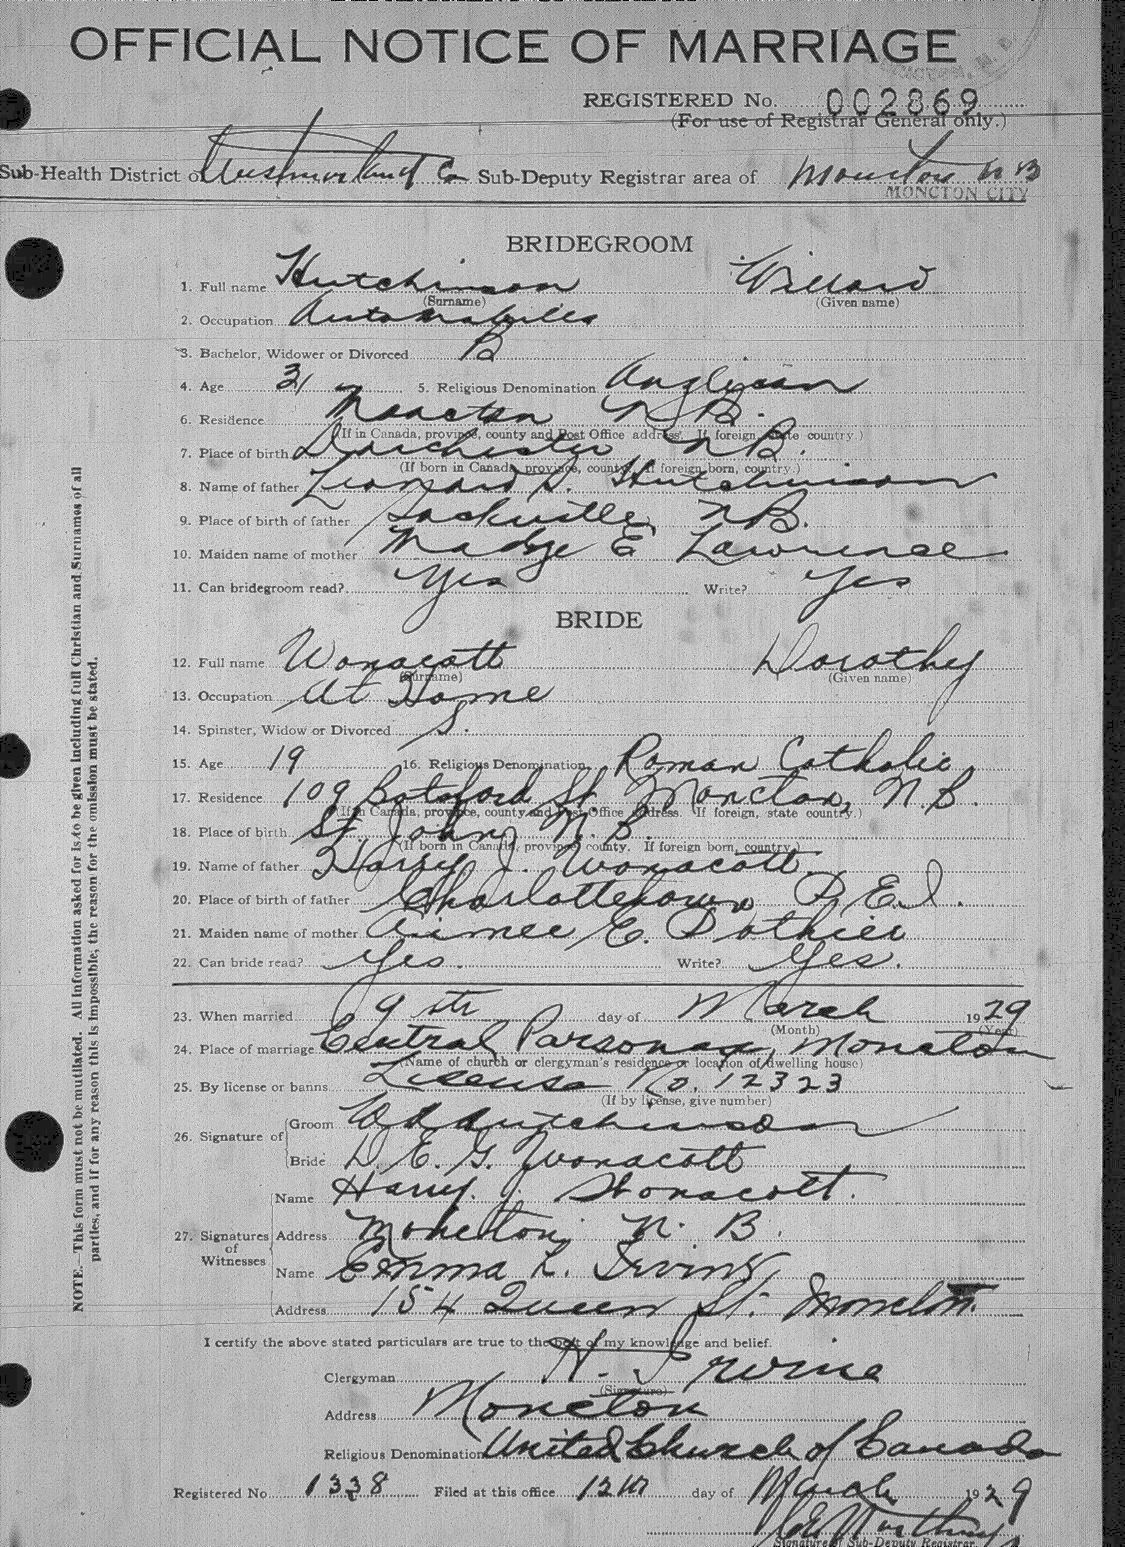 OFFICIAL NOTICE OF MARRIAGE
REGISTERED No. 002869
(For use of Registrar General only.)
Sub-Health District of Westmorland Co Sub-Deputy Registrar area of Moncton N B
MONCTON CITY
BRIDEGROOM
1. Full name Hutchinson Willard
(Surname) (Given name)
2. Occupation Automobiles
3. Bachelor, Widower or Divorced B
4. Age 31 5. Religious Denomination Anglican
6. Residence Moncton N.B.
(If in Canada, province, county and Post Office address. If foreign, state country.)
7. Place of birth Dorchester N.B.
(If born in Canada, province, county. If foreign born, country.)
8. Name of father Leonard S. Hutchinson
9. Place of birth of father Sackville, N.B.
10. Maiden name of mother Madge E Lawrence
11. Can bridegroom read? Yes Write? Yes
BRIDE
12. Full name Wonacott Dorothy
(Surname) (Given name)
13. Occupation At Home
14. Spinster, Widow or Divorced S.
15. Age 19 16. Religious Denomination Roman Catholic
17. Residence 109 Botsford St. Moncton, N.B.
(If in Canada, province, county and Post Office address. If foreign, state country.)
18. Place of birth St. John, N.B.
(If born in Canada, province, county. If foreign born, country.)
19. Name of father Harry J. Wonacott
20. Place of birth of father Charlottetown P.E.I.
21. Maiden name of mother Aimee E. Pothier
22. Can bride read? Yes. Write? Yes.
23. When married 9th day of March 1929
(Month) (Year)
24. Place of marriage Central Parsonage, Moncton
(Name of church or clergyman's residence or location of dwelling house)
25. By license or banns License No. 12323
(If by license, give number)
26. Signature of Groom W L Hutchinson
Bride D. E. G. Wonacott
27. Signatures of Witnesses
Name Harry. J. Wonacott.
Address Moncton, N. B.
Name Emma L. Irving
Address 154 Queen St. Moncton
I certify the above stated particulars are true to the best of my knowledge and belief.
Clergyman H. Irvine
(Signature)
Address Moncton
Religious Denomination United Church of Canada
Registered No 1338 Filed at this office 12th day of March 1929
Signature of Sub-Deputy Registrar.
NOTE.—This form must not be mutilated. All information asked for is to be given including full Christian and Surnames of all
parties, and if for any reason this is impossible, the reason for the omission must be stated.